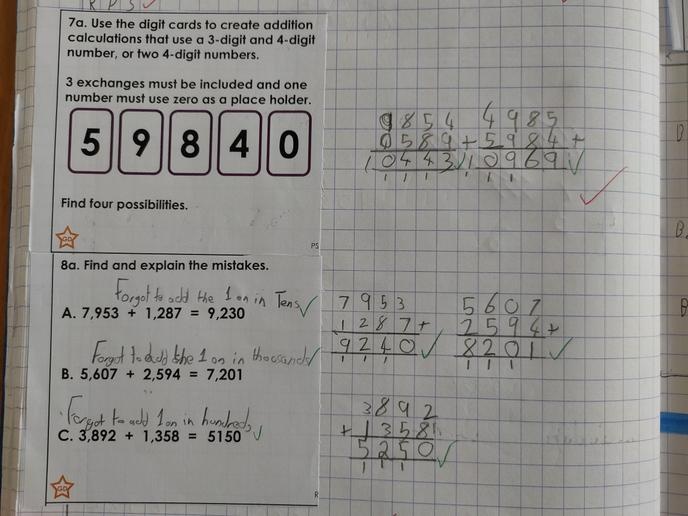 R P S
7a. Use the digit cards to create addition
calculations that use a 3-digit and 4-digit
number, or two 4-digit numbers.
3 exchanges must be included and one
number must use zero as a place holder.
5 9 8 4 0
Find four possibilities.
GD
PS
9854
0589+
10443
1 1 1 1
4985
5984+
10969
1 1 1
8a. Find and explain the mistakes.
Forgot to add the 1 on in Tens
A. 7,953 + 1,287 = 9,230
Forgot to add the 1 on in thousands
B. 5,607 + 2,594 = 7,201
Forgot to add 1 on in hundreds
C. 3,892 + 1,358 = 5150
GD
R
7953
1287+
9240
1 1 1
5607
2594+
8201
1 1 1
3892
+1358
5250
1 1 1
D
B.